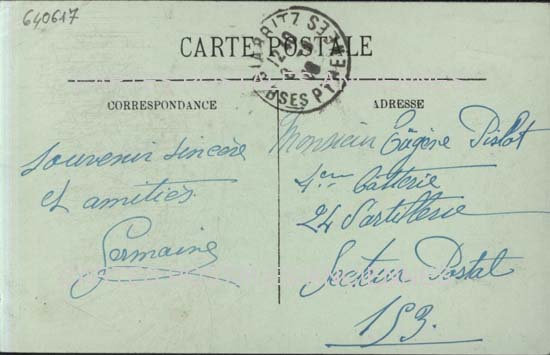 640617
CARTE POSTALE
BIARRITZ
BSES PYRENEES
CORRESPONDANCE
ADRESSE
Souvenir sincère
et amitiés
Germaine
Monsieur Eugène Pislot
4em Batterie
24 d'artillerie
Secteur Postal
153.